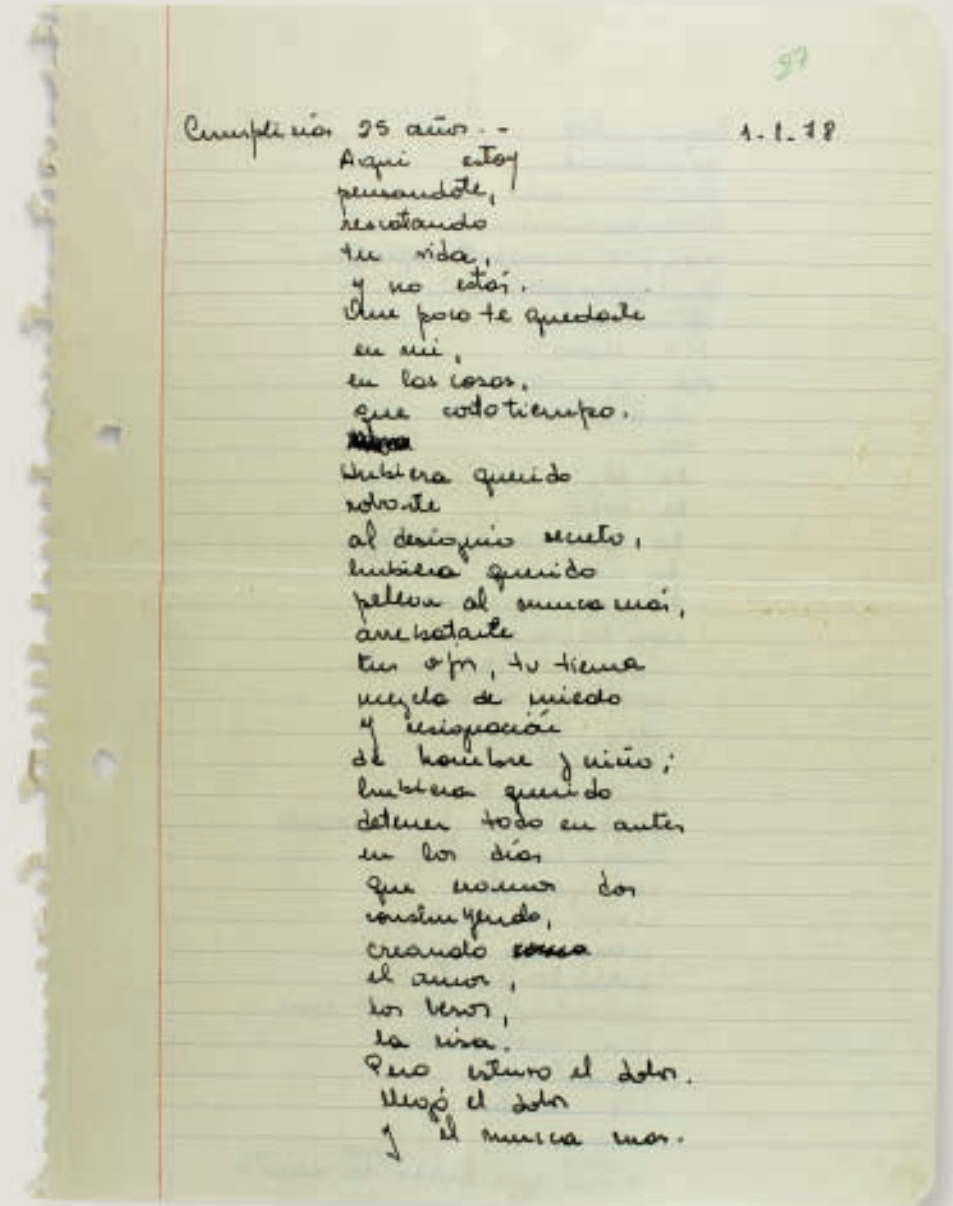 27
Cumplirías 25 años.- 1-1-78
Aqui estoy
pensandote,
rescatando
tu vida,
y no estás.
Que poco te quedaste
en mi,
en las cosas,
que corto tiempo.
Hubiera querido
robarte
al designio secreto,
hubiera querido
pelear al nunca más,
arrebatarte
tus ojos, tu tierna
mezcla de miedo
y resignación
de hombre y niño;
hubiera querido
detener todo en antes
en los días
que eramos dos
construyendo,
creando
el amor,
los besos,
la risa.
Pero estuvo el dolor.
Llegó el dolor
y el nunca mas.